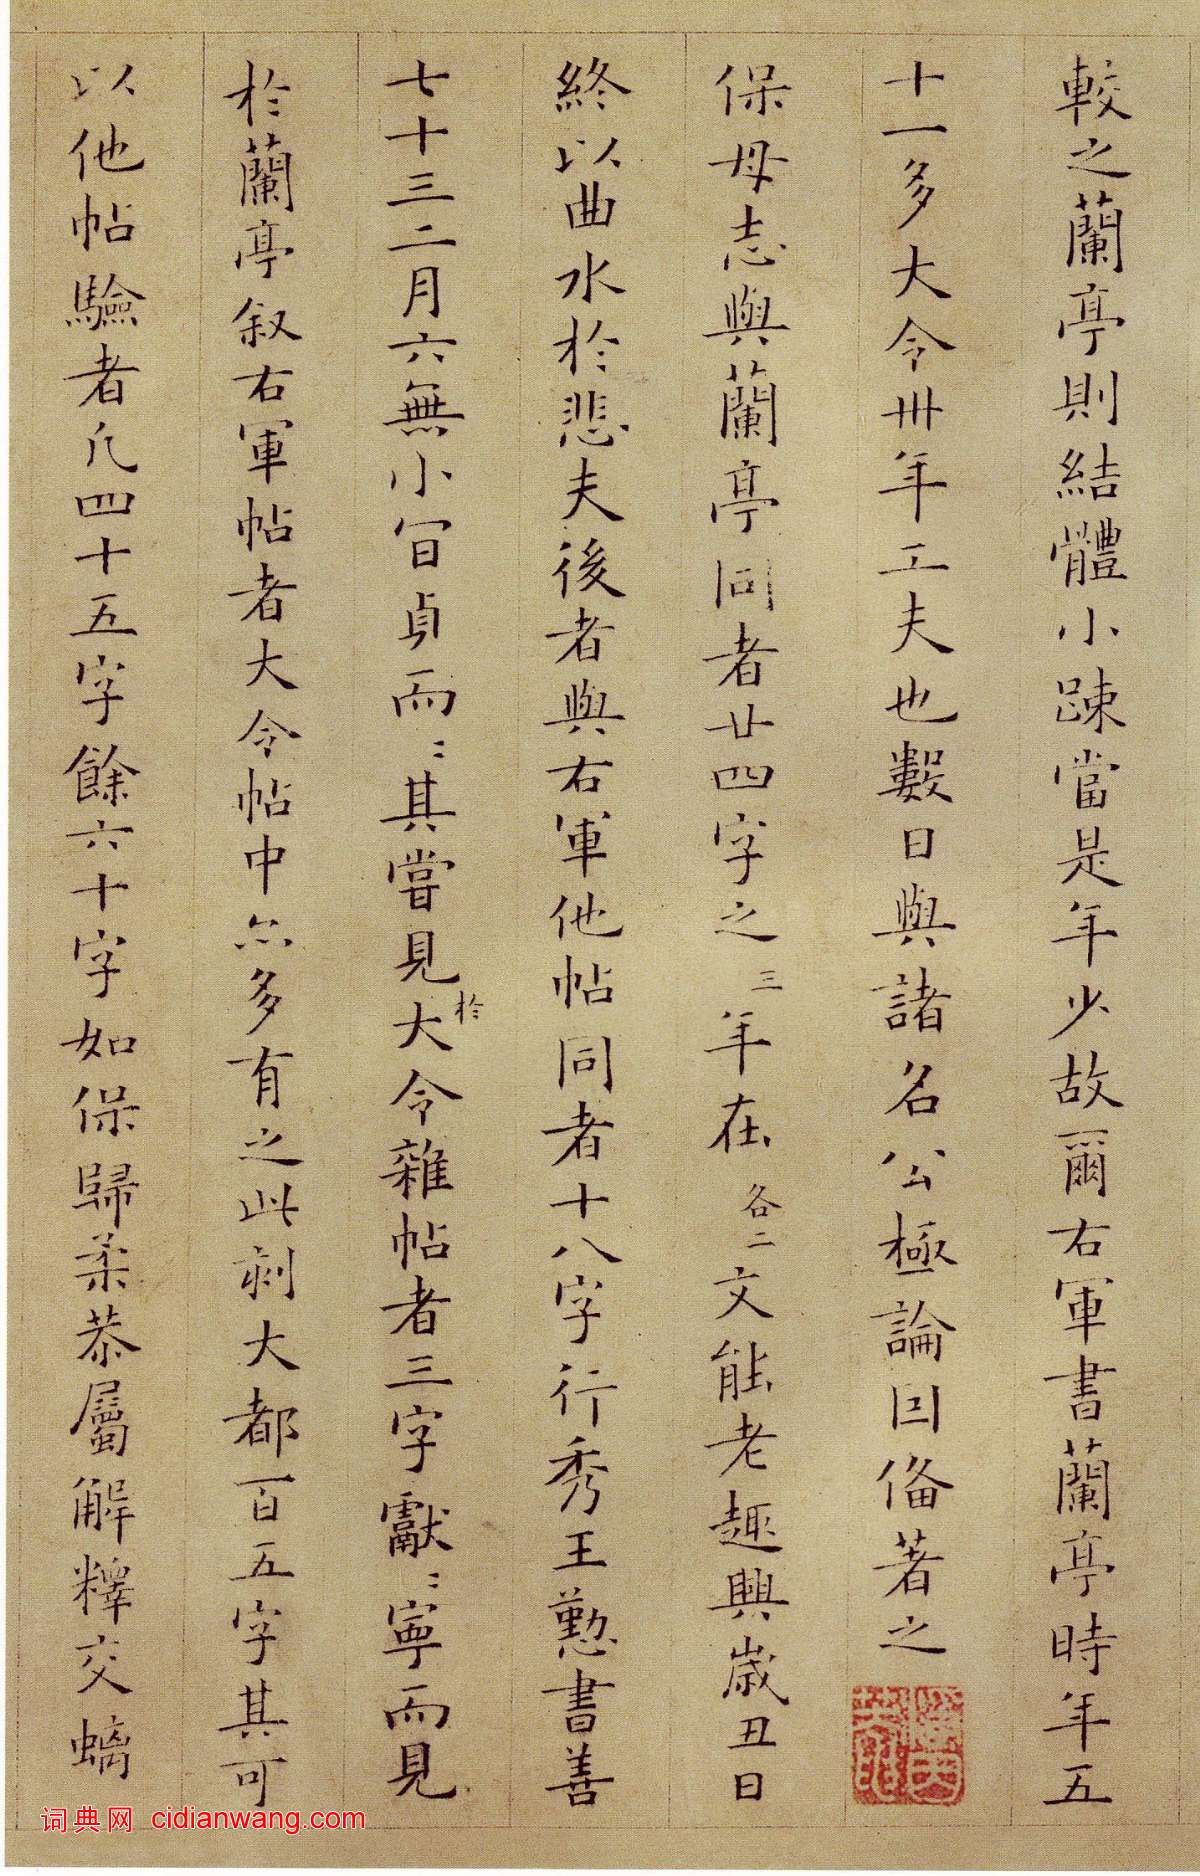 較之蘭亭則結體小踈當是年少故爾右軍書蘭亭時年五
十一多大令卅年工夫也數日與諸名公極論因俻著之
保母志與蘭亭同者廿四字之三年在各二文能老趣興歲丑日
終以曲水於悲夫後者與右軍他帖同者十八字行秀王懃書善
七十三二月六無小冝貞而〻其嘗見於大令雜帖者三字獻〻寧而見
於蘭亭叙右軍帖者大令帖中亦多有之此刻大都百五字其可
以他帖驗者凡四十五字餘六十字如保歸柔恭屬解釋交螭
词典网 cidianwang.com